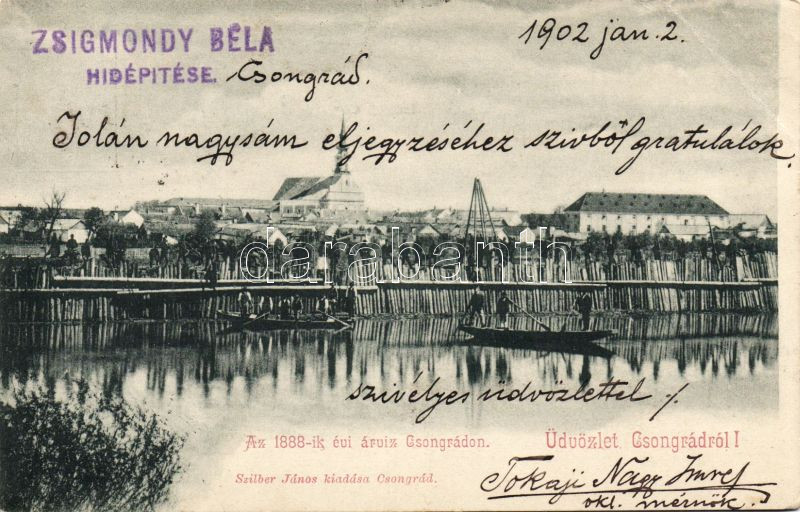 ZSIGMONDY BÉLA
HIDÉPITÉSE.
Csongrád.
1902 jan. 2.
Jolán nagysám eljegyzéséhez szivből gratulálok.
darabanth
szivélyes üdvözlettel ./.
Az 1888-ik évi árviz Csongrádon.
Üdvözlet Csongrádról!
Szilber János kiadása Csongrád.
Tokaji Nagy Imre
okl. mérnök.